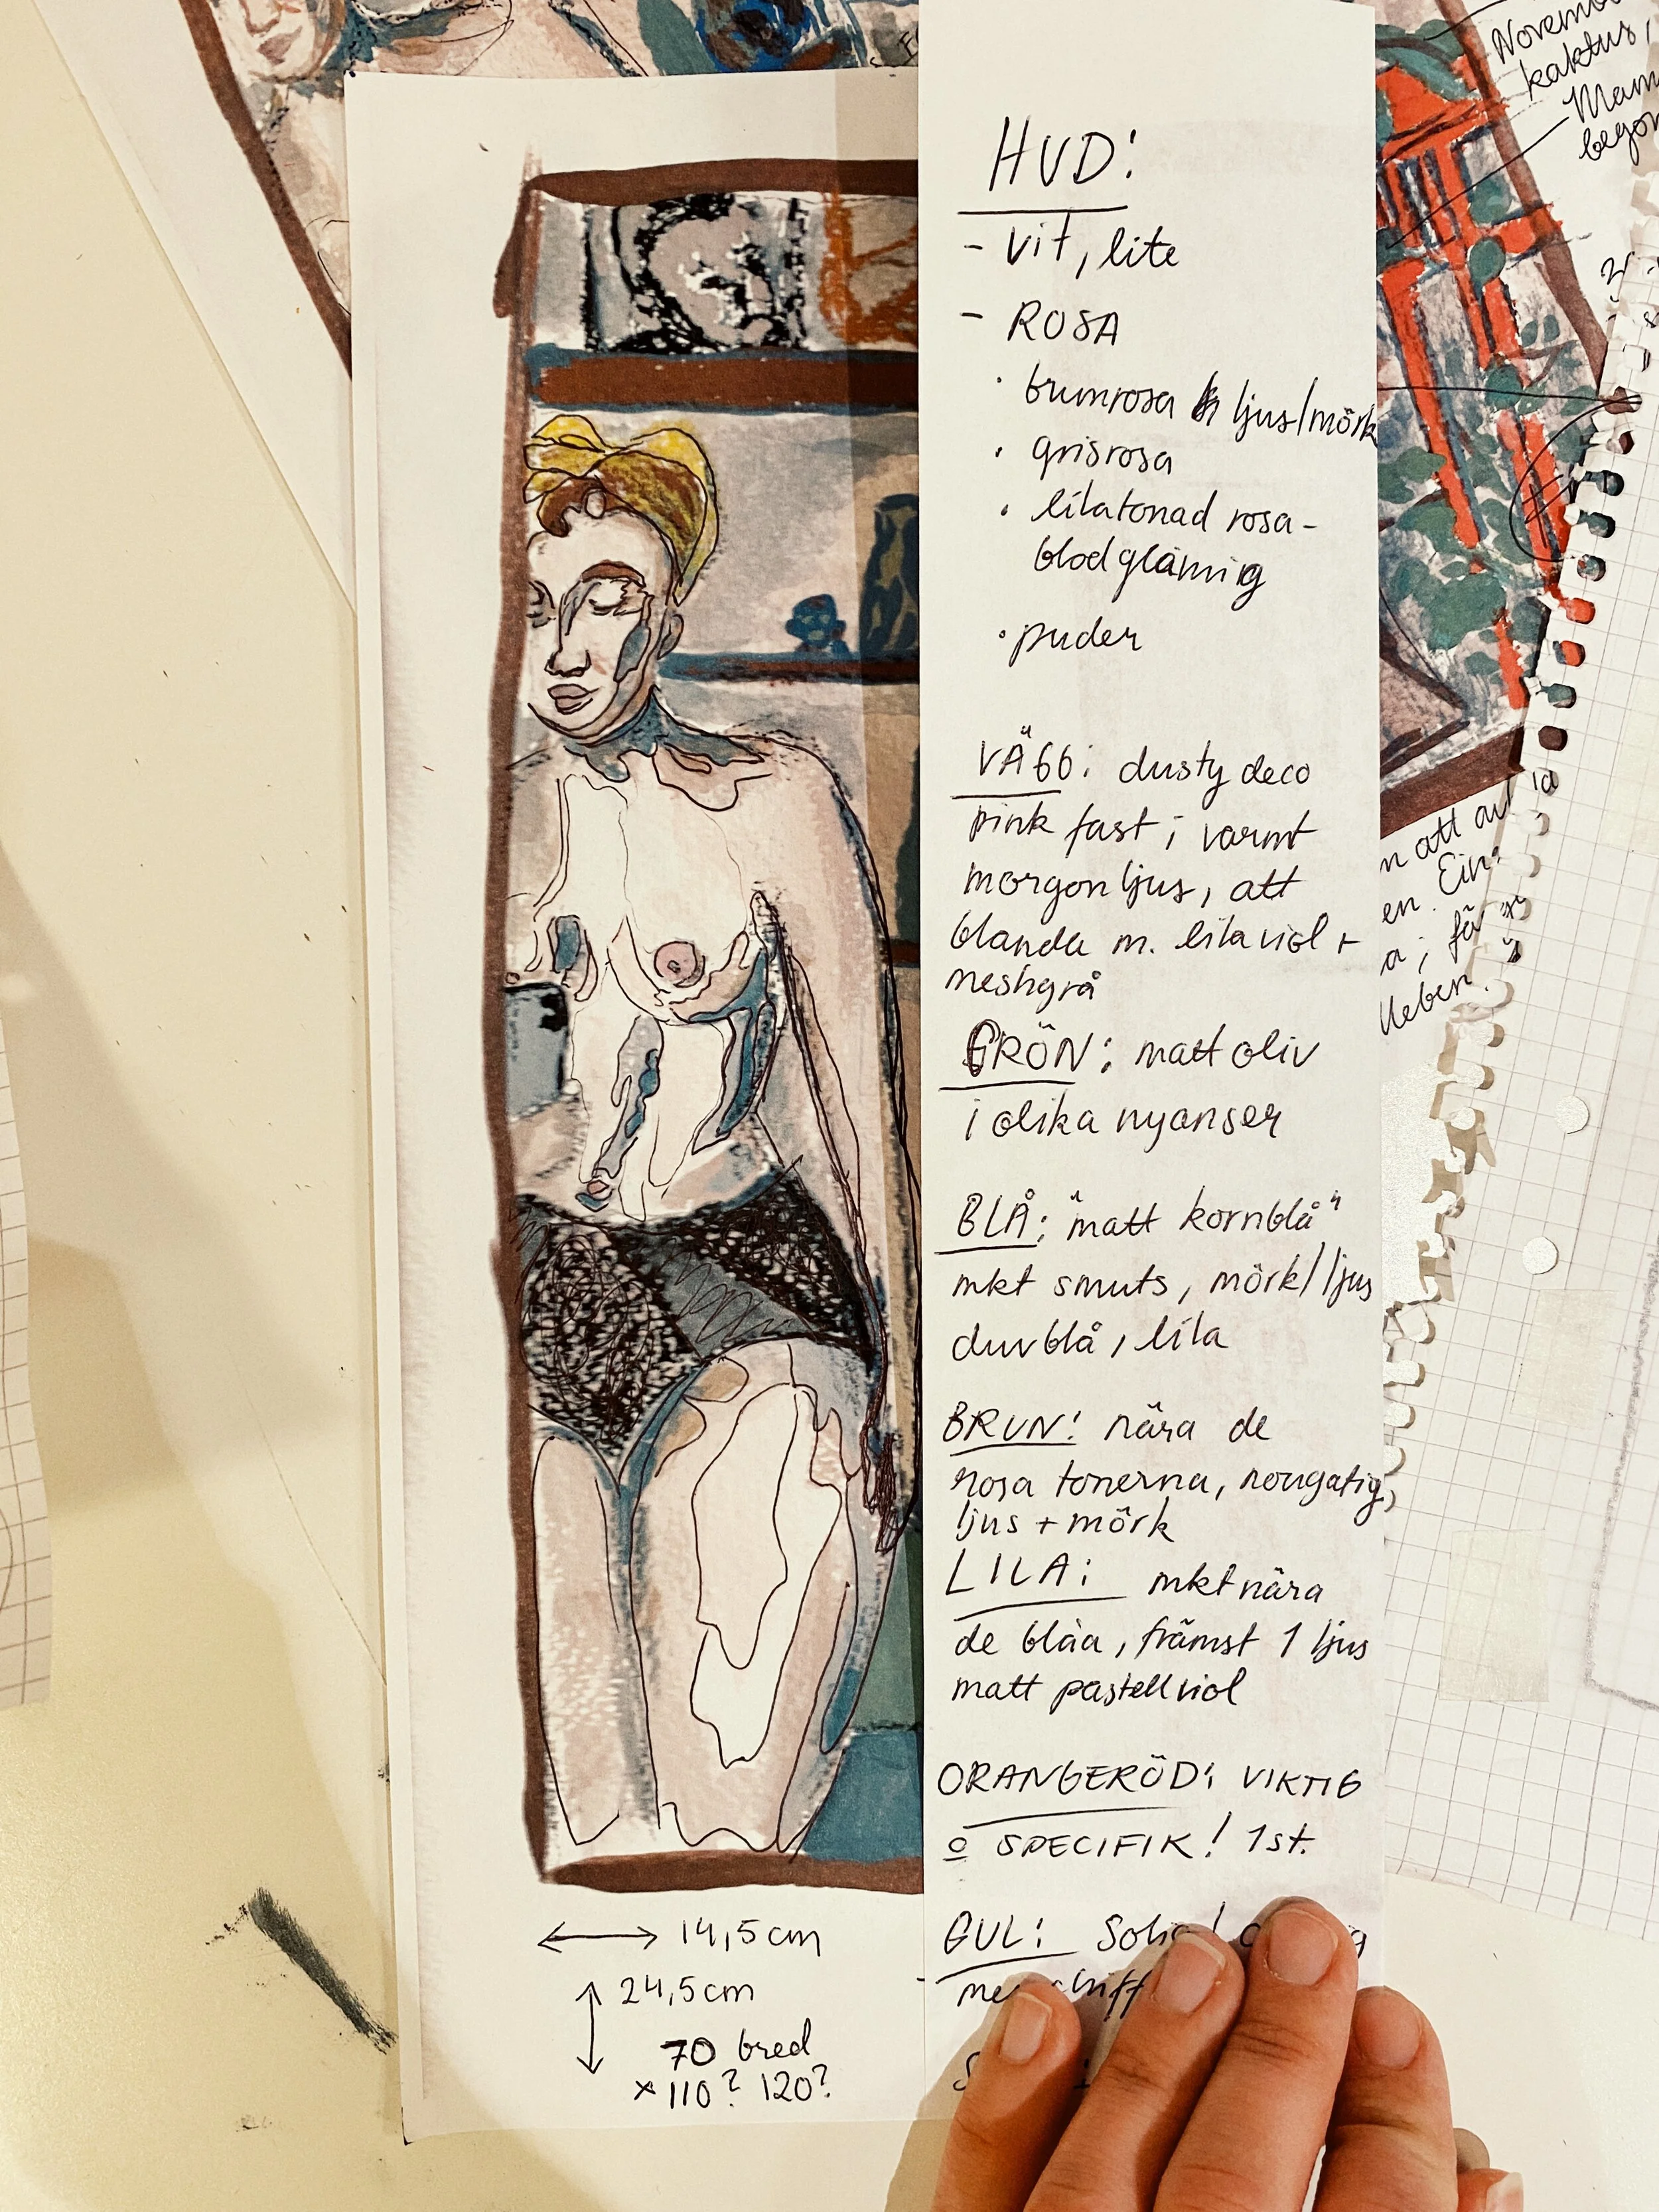 HUD:
- vit, lite
- ROSA
· brunrosa ljus/mörk
· grisrosa
· lilatonad rosa-
blodglåmig
· puder
VÄGG: dusty deco
pink fast i varmt
morgonljus, att
blanda m. lilaviol +
meshgrå
GRÖN: matt oliv
i olika nyanser
BLÅ: "matt kornblå"
mkt smuts, mörk/ljus
duvblå, lila
BRUN: nära de
rosa tonerna, nougatig,
ljus + mörk
LILA: mkt nära
de blåa, främst 1 ljus
matt pastellviol
ORANGERÖD: VIKTIG
o SPECIFIK! 1st.
GUL:
14,5cm
24,5cm
70 bred
x 110? 120?
Novem
kaktus,
Mam
bego
n att
en. Ein
a; fä